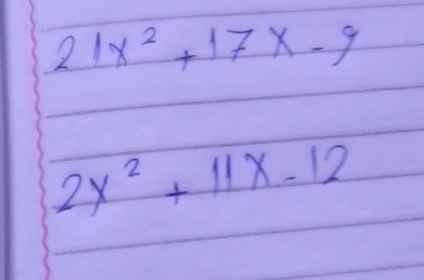 21x² + 17x - 9
2x² + 11x - 12